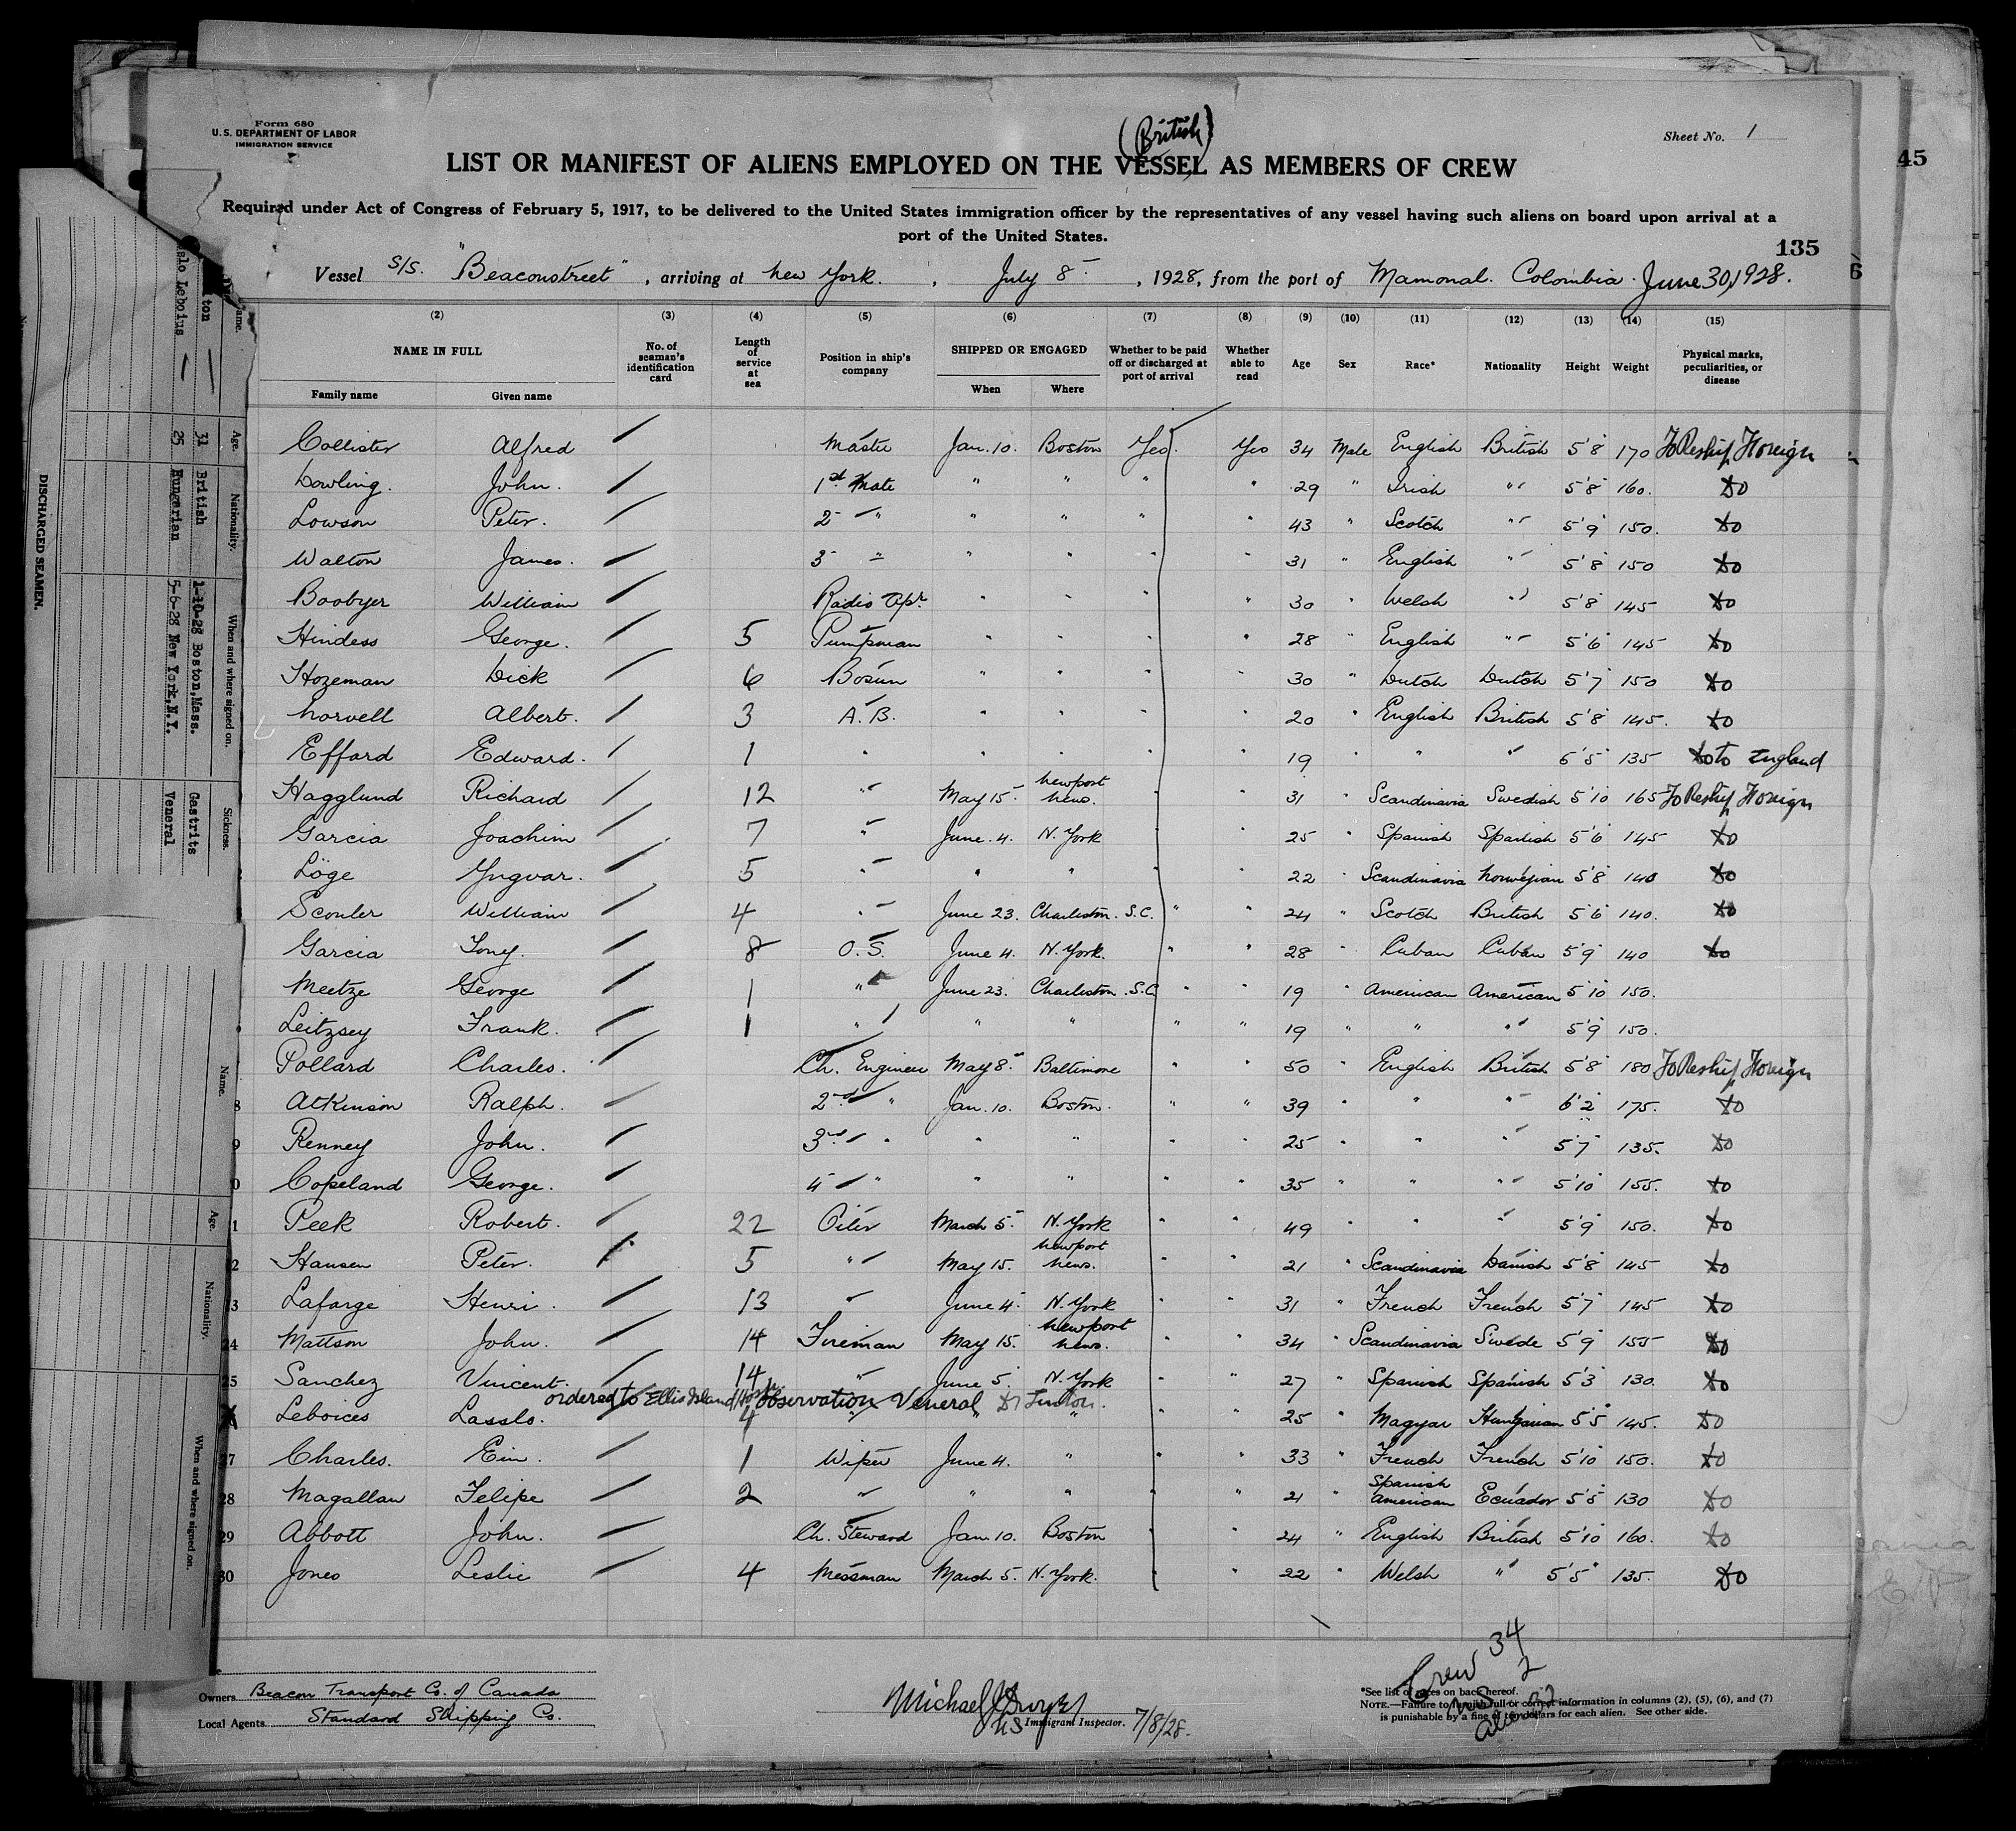 Form 680
U.S. DEPARTMENT OF LABOR
IMMIGRATION SERVICE
(British)
Sheet No. 1
LIST OR MANIFEST OF ALIENS EMPLOYED ON THE VESSEL AS MEMBERS OF CREW
45
Required under Act of Congress of February 5, 1917, to be delivered to the United States immigration officer by the representatives of any vessel having such aliens on board upon arrival at a
port of the United States.
135
Vessel S/S. "Beaconstreet", arriving at New York., July 8, 1928, from the port of Mamonal. Colombia. June 30, 1928.
6
(2) (3) (4) (5) (6) (7) (8) (9) (10) (11) (12) (13) (14) (15)
NAME IN FULL
Family name Given name
No. of seaman's identification card
Length of service at sea
Position in ship's company
SHIPPED OR ENGAGED
When Where
Whether to be paid off or discharged at port of arrival
Whether able to read
Age Sex Race* Nationality Height Weight
Physical marks, peculiarities, or disease
Collister Alfred Master Jan. 10. Boston Yes. Yes 34 Male English British 5'8" 170 To Reship Foreign
Dowling. John. 1st Mate " " " " 29 " Irish " 5'8" 160. do
Lowson Peter. 2 " " " " " 43 " Scotch " 5'9" 150. do
Walton James. 3 " " " " " 31 " English " 5'8" 150 do
Boobyer William Radio Opr. " " " " 30 " Welsh " 5'8" 145 do
Hindess George. 5 Pumpman " " " " 28 " English " 5'6" 145 do
Hozeman Dick 6 Bosun " " " " 30 " Dutch Dutch 5'7" 150 do
Norvell Albert. 3 A.B. " " " " 20 " English British 5'8" 145. do
Efford Edward. 1 " " " " " 19 " " " 6'5" 135 do to England
Hagglund Richard 12 " May 15. Newport News. " " 31 " Scandinavia Swedish 5'10" 165 To Reship Foreign
Garcia Joachim 7 " June. 4. N. York " " 25 " Spanish Spanish 5'6" 145 do
Löge Yngvar. 5 " " " " " 22 " Scandinavia Norwegian 5'8" 140 do
Scouler William 4 " June 23. Charleston. S.C. " " 24 " Scotch British 5'6" 140. do
Garcia Tony. 8 O.S. June 4. N. York. " " 28 " Cuban Cuban 5'9" 140 do
Meetze George 1 " June 23. Charleston. S.C. " " 19 " American American 5'10" 150.
Leitzsey Frank. 1 " " " " " 19 " " " 5'9" 150.
Pollard Charles. Ch. Engineer May 8. Baltimore " " 50 " English British 5'8" 180 To Reship Foreign
8 Atkinson Ralph. 2nd " Jan. 10. Boston. " " 39 " " " 6'2" 175. do
9 Renney John. 3rd " " " " " 25 " " " 5'7" 135. do
0 Copeland George. 4 " " " " " 35 " " " 5'10" 155. do
1 Peek Robert. 22 Oiler March 5. N. York " " 49 " " " 5'9" 150. do
2 Hansen Peter. 5 " May 15. Newport News. " " 21 " Scandinavia Danish 5'8" 145 do
3 Lafarge Henri. 13 " June 4. N. York " " 31 " French French 5'7" 145 do
24 Mattson John. 14 Fireman May 15. Newport News. " " 34 " Scandinavia Swede 5'9" 155 do
25 Sanchez Vincent. 14 " June 5. N. York " " 27 " Spanish Spanish 5'3" 130. do
ordered to Ellis Island Hosp. observation Veneral
Leboices Lasslo. 4 " " " " 25 " Magyar Hungarian 5'5" 145. do
27 Charles. Ein. 1 Wiper June 4. " " " 33 " French French 5'10" 150. do
28 Magallan Felipe 2 " " " " " 21 " Spanish American Ecuador 5'5" 130 do
29 Abbott John. Ch. Steward Jan. 10. Boston " " 24 " English British 5'10" 160. do
30 Jones Leslie 4 Messman March 5. N. York. " " 22 " Welsh " 5'5" 135. do
Crew 34
U.S. 2
Aliens 32
Owners Beacon Transport Co. of Canada
Local Agents Standard Shipping Co.
Michael
Immigrant Inspector. 7/8/28.
*See list of races on back hereof.
NOTE.—Failure to furnish full or correct information in columns (2), (5), (6), and (7)
is punishable by a fine of ten dollars for each alien. See other side.
DISCHARGED SEAMEN.
Name. Age. Nationality. When and where signed on. Sickness.
lton 31 British 1-10-28 Boston, Mass. Gastrits
slo Lebolus 25 Hungarian 5-6-28 New York, N.Y. Veneral
Name. Age. Nationality. When and where signed on.